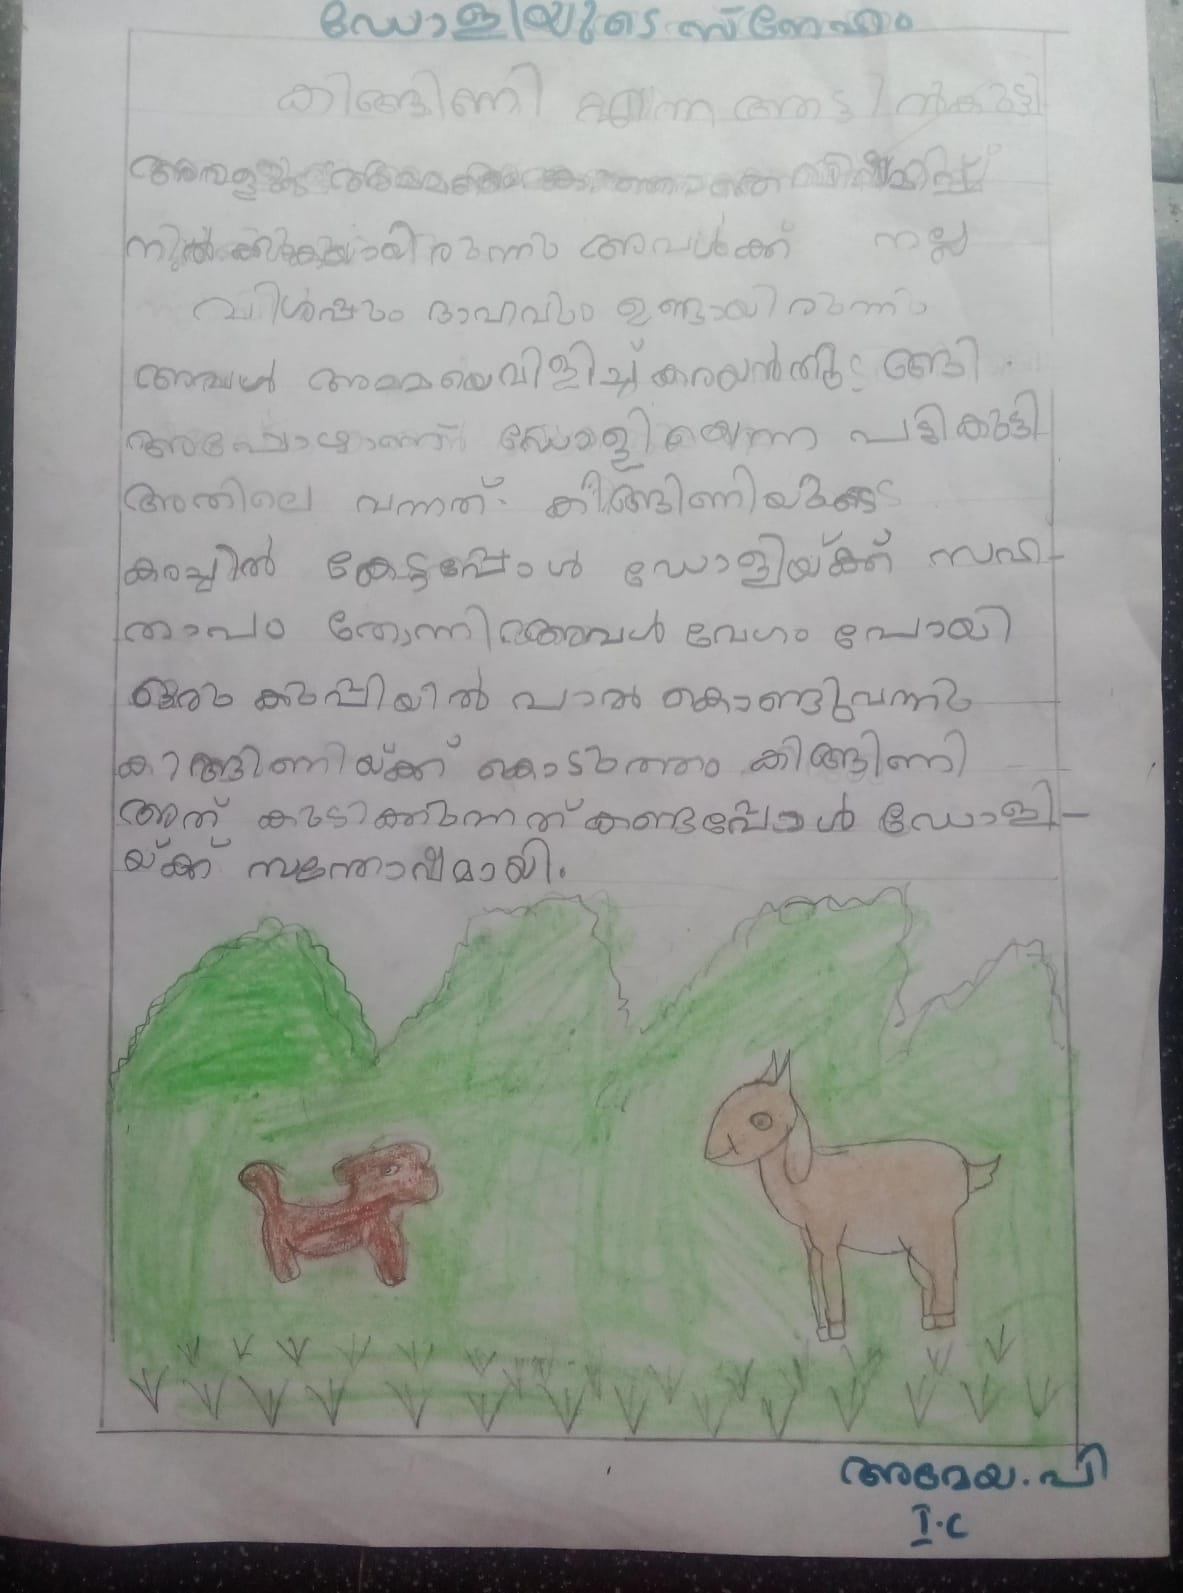 ഡോളിയുടെ സ്നേഹം
കിങ്ങിണി എന്ന ആട്ടിൻകുട്ടി
അവളുടെ അമ്മയെ കാണാതെ വിഷമിച്ച്
നിൽക്കുകയായിരുന്നു അവൾക്ക് നല്ല
വിശപ്പും ദാഹവും ഉണ്ടായിരുന്നു
അവൾ അമ്മയെവിളിച്ച് കരയൻതുടങ്ങി.
അപ്പോഴാണ് ഡോളിയെന്ന പട്ടികുട്ടി
അതിലെ വന്നത്. കിങ്ങിണിയുടെ
കരച്ചിൽ കേട്ടപ്പോൾ ഡോളിയ്ക്ക് സഹ-
താപം തോന്നി അവൾ വേഗം പോയി
ഒരു കുപ്പിയിൽ പാൽ കൊണ്ടുവന്നു
കിങ്ങിണിയ്ക്ക് കൊടുത്തു കിങ്ങിണി
അത് കുടിക്കുന്നത് കണ്ടപ്പോൾ ഡോളി-
യ്ക്ക് സന്തോഷമായി.
അമേയ. പി
I.C